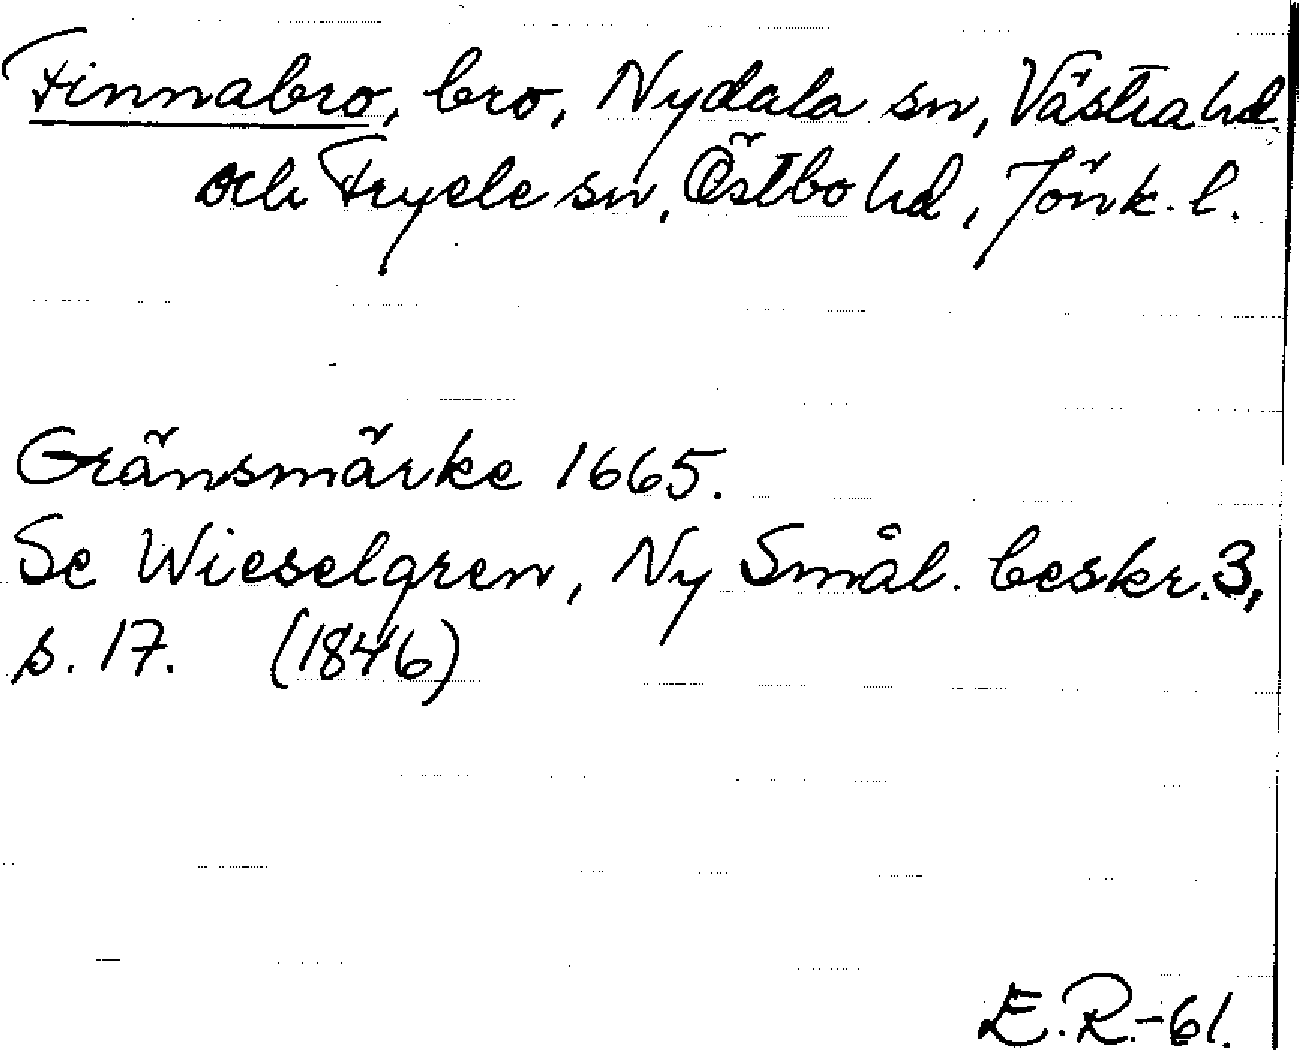 Finnabro, bro, Nydala sn, Västra hd
och Fryele sn, Östbo hd, Jönk. l.
Gränsmärke 1665.
Se Wieselgren, Ny Smål. beskr. 3,
s. 17. (1846)
E.R.-61.